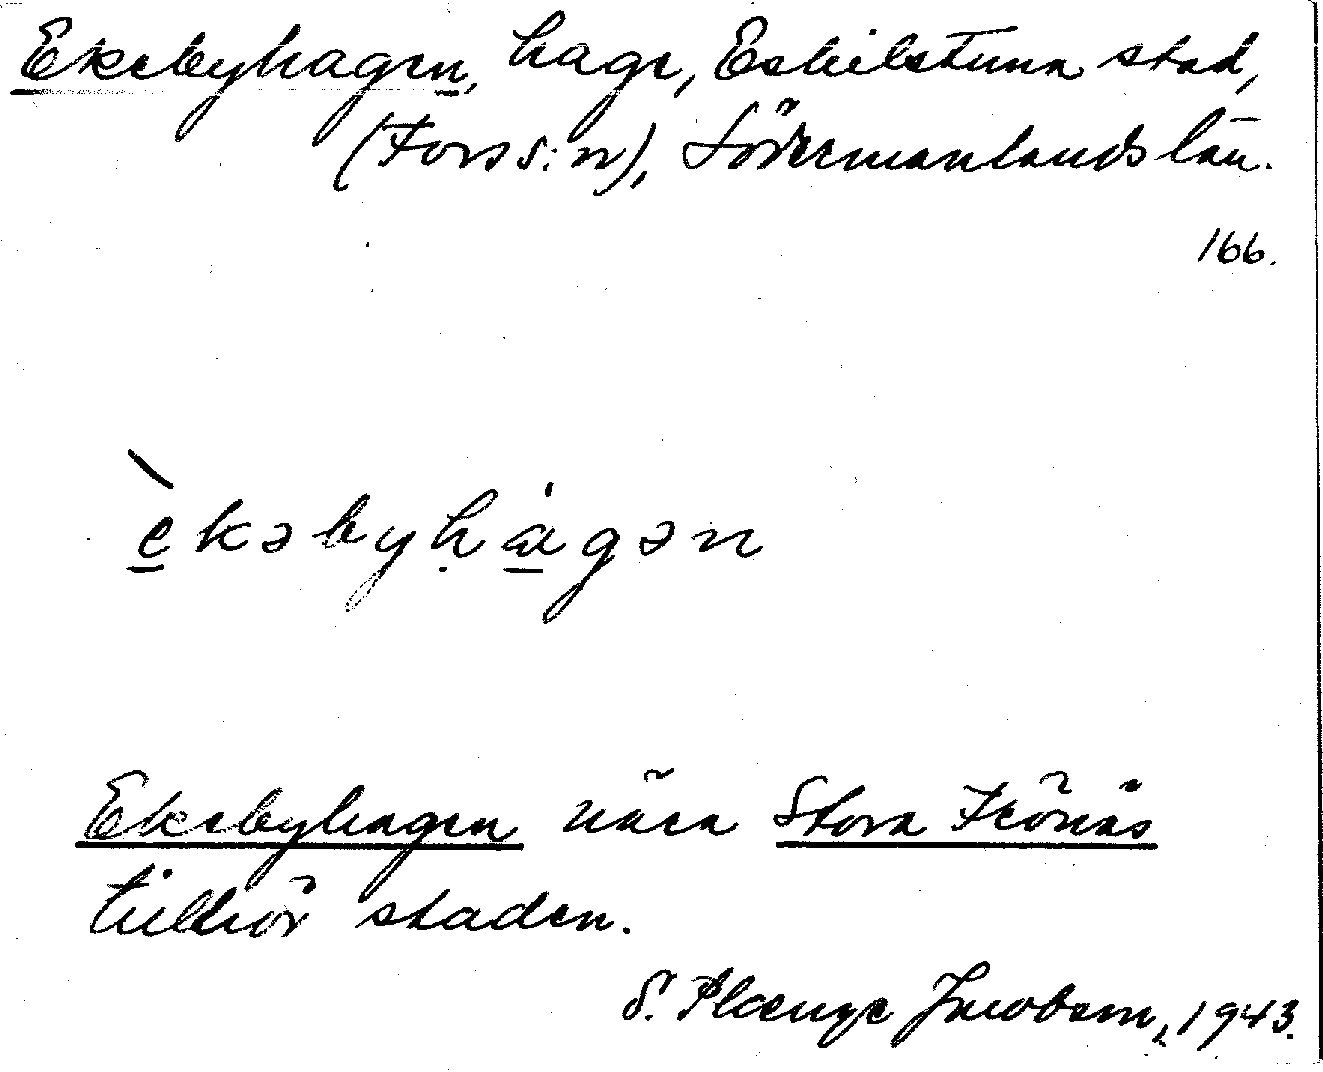 Ekebyhagen, hage, Eskilstuna stad,
(Fors s:n), Södermanlands län.
166.
èkəbyḥàgən
Ekebyhagen nära Stora Trönäs
tillhör staden.
S. Plænge Jacobson, 1943.